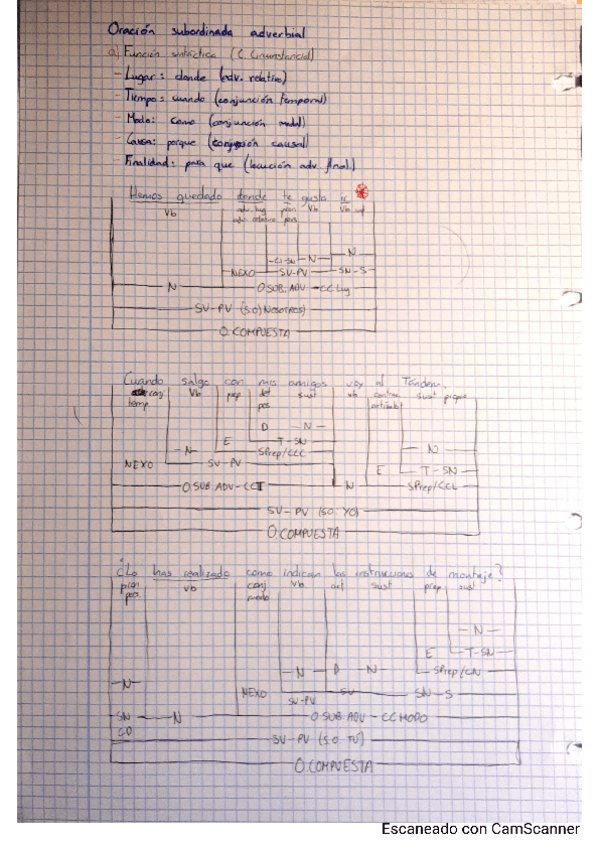 Oración subordinada adverbial
a) Función sintáctica (C. Circunstancial)
- Lugar: donde (adv. relativo)
- Tiempo: cuando (conjunción temporal)
- Modo: como (conjunción modal)
- Causa: porque (conjunción causal)
- Finalidad: para que (locución adv. final)
Hemos quedado donde te gusta ir
Vb adv. lug pron Vb Vb inf
adv. relativo pers
N
CI-SN N
NEXO SV-PV SN-S
N O.SUB. ADV - CC Lug
SV-PV (S.O) NOSOTROS)
O.COMPUESTA
Cuando salgo con mis amigos voy al Tandem.
conj Vb prep det sust vb sust propio
temp pos
D N
E T-SN N
N SPrep/CCC
NEXO SV-PV E T-SN
O.SUB. ADV-CCT N SPrep/CCL
SV-PV (S.O: YO)
O.COMPUESTA
¿Lo has realizado como indican las instrucciones de montaje?
pron Vb conj vb art sust prep sust
pers. modo
N
E T-SN
N D N SPrep/CN
N NEXO SV SN-S
SV-PV
SN N O SUB. ADV - CC MODO
CD
SV-PV (S.O. TÚ)
O.COMPUESTA
Escaneado con CamScanner